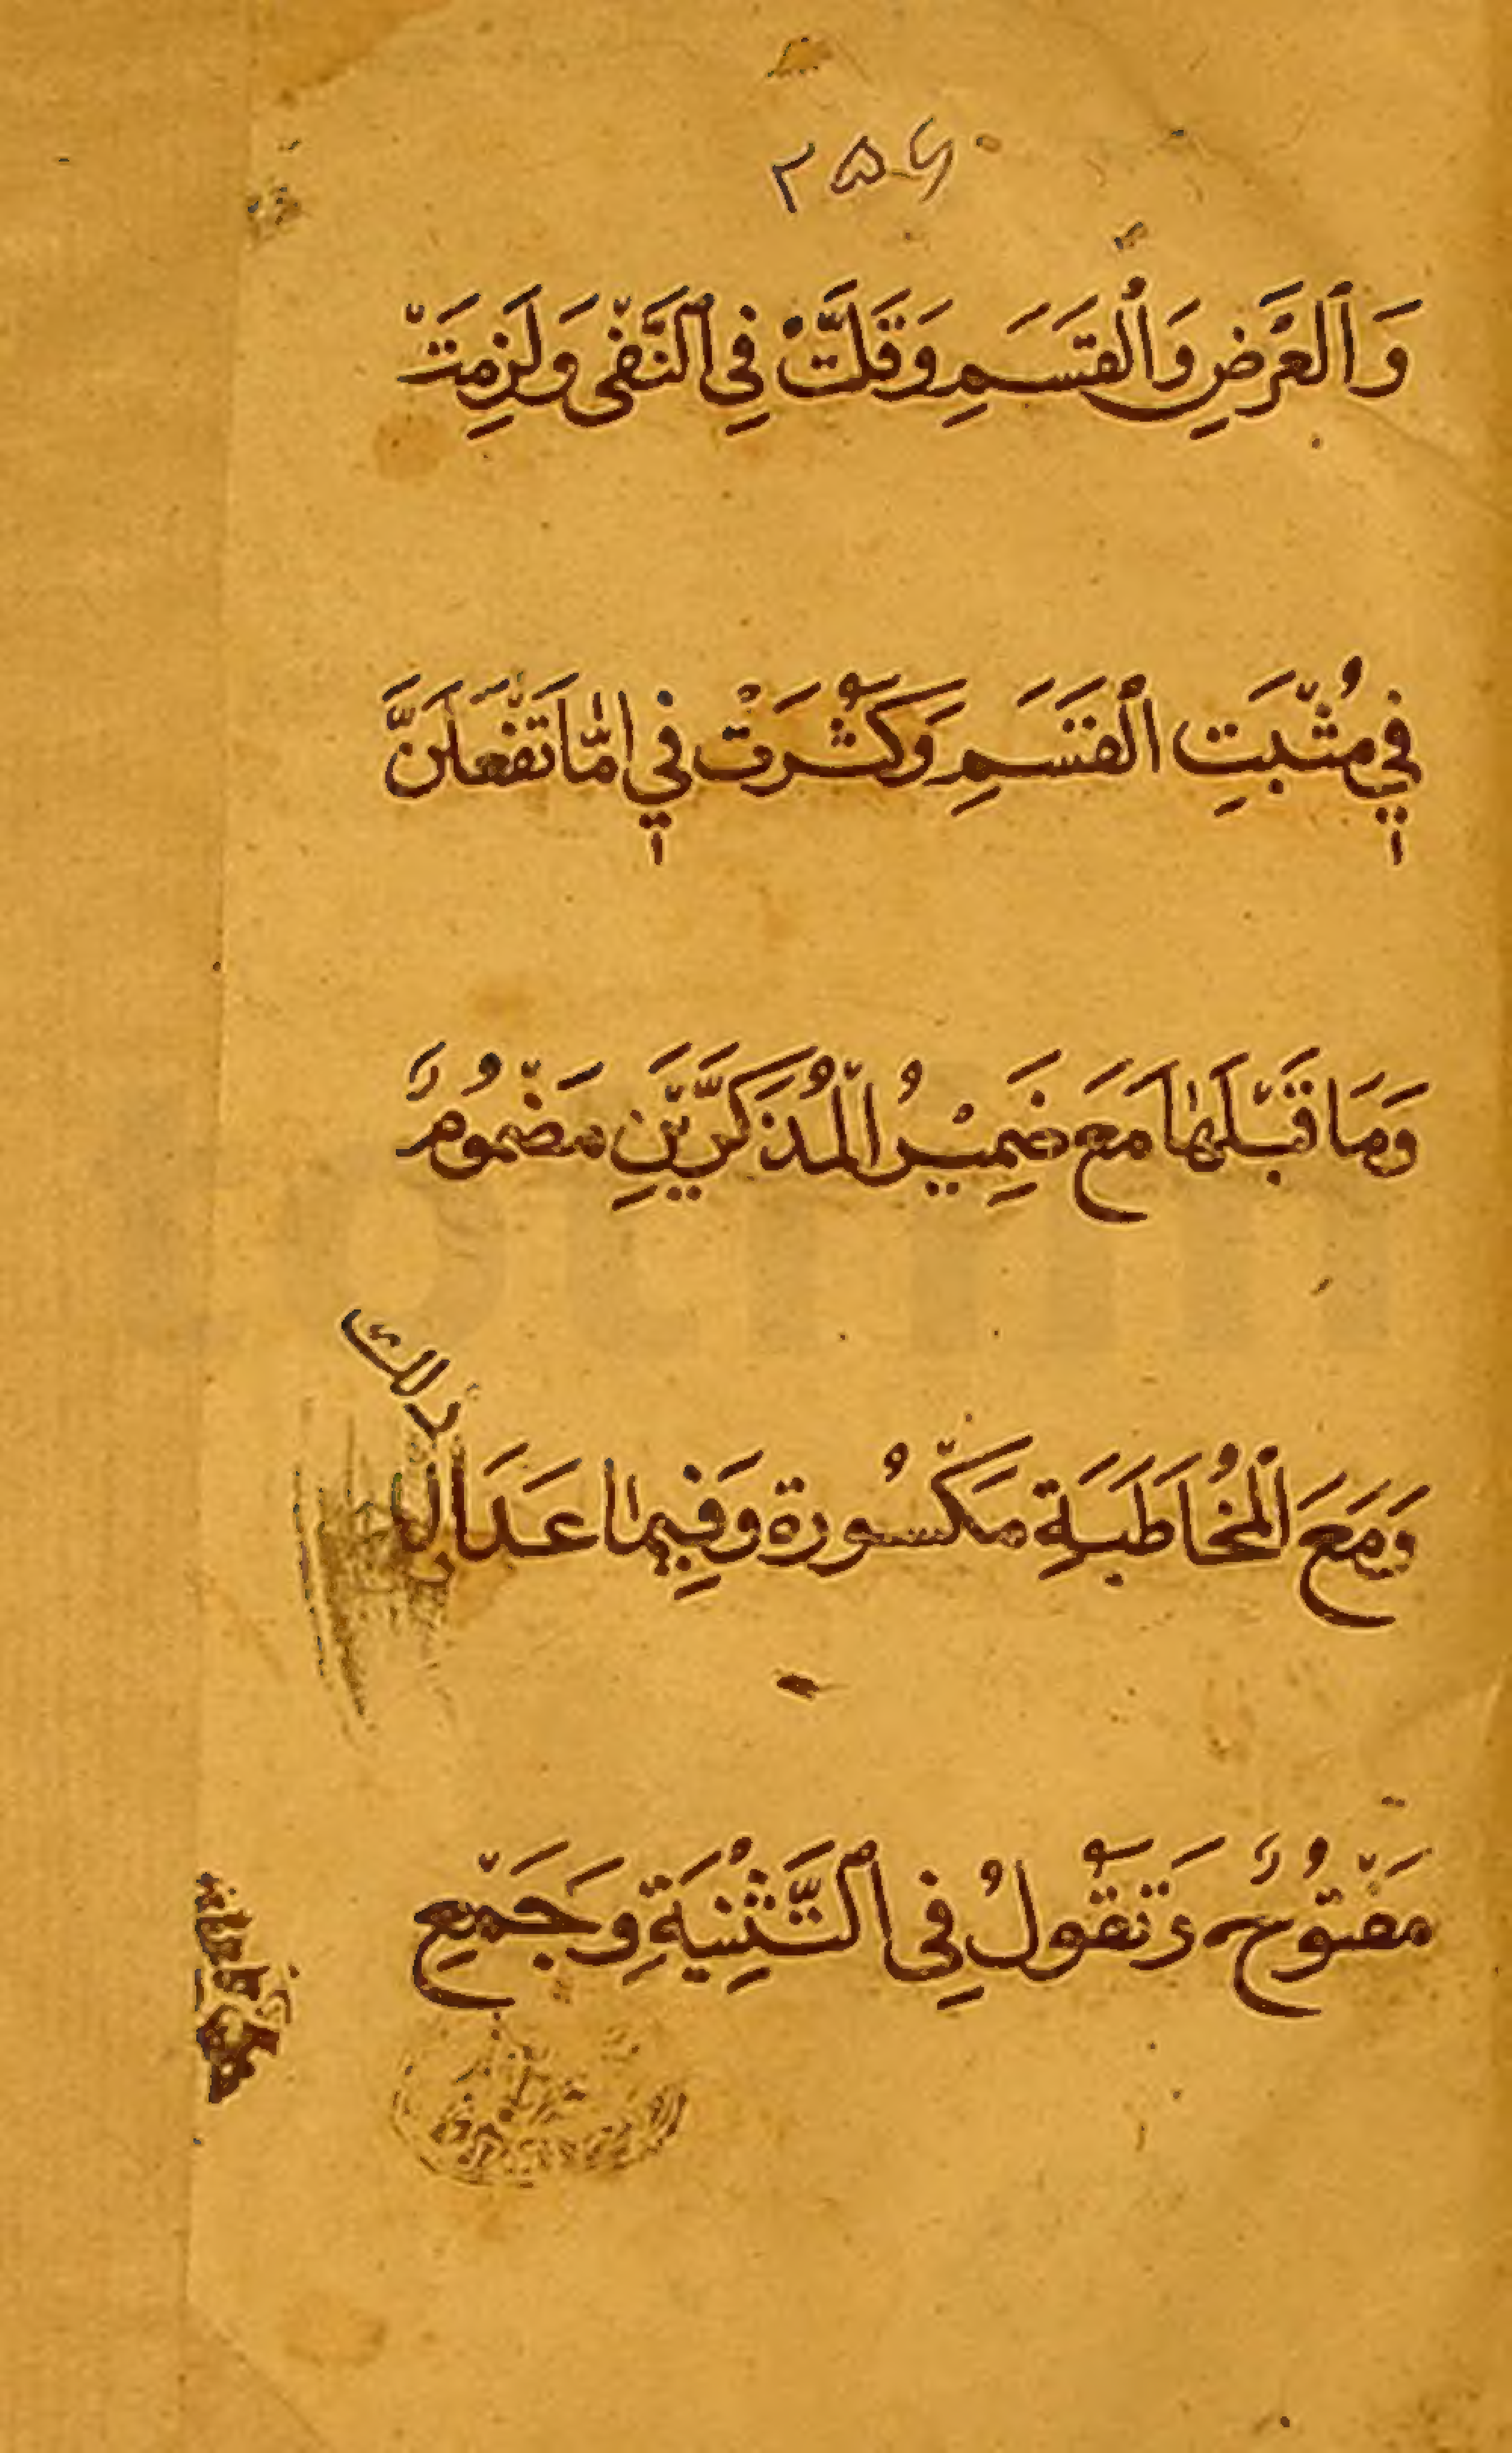 ۲۵۶
وَالْعَرْضِ وَالْقَسَمِ وَقَلَّتْ فِي النَّفْىِ وَلَزِمَتْ
فِي مُثْبَتِ الْقَسَمِ وَكَثُرَتْ فِي اِمَّا تَفْعَلَنَّ
وَمَا قَبْلَهَا مَعَ ضَمِيْرُ الْمُذَكَّرَيْنِ مَضْمُومٌ
وَمَعَ الْمُخَاطَبَةِ مَكْسُورة وَفِيمَا عَدَا
ذلك
مَفْتُوحٌ وَتَقُولُ فِى التَّثْنِيَةِ وَجَمْعِ